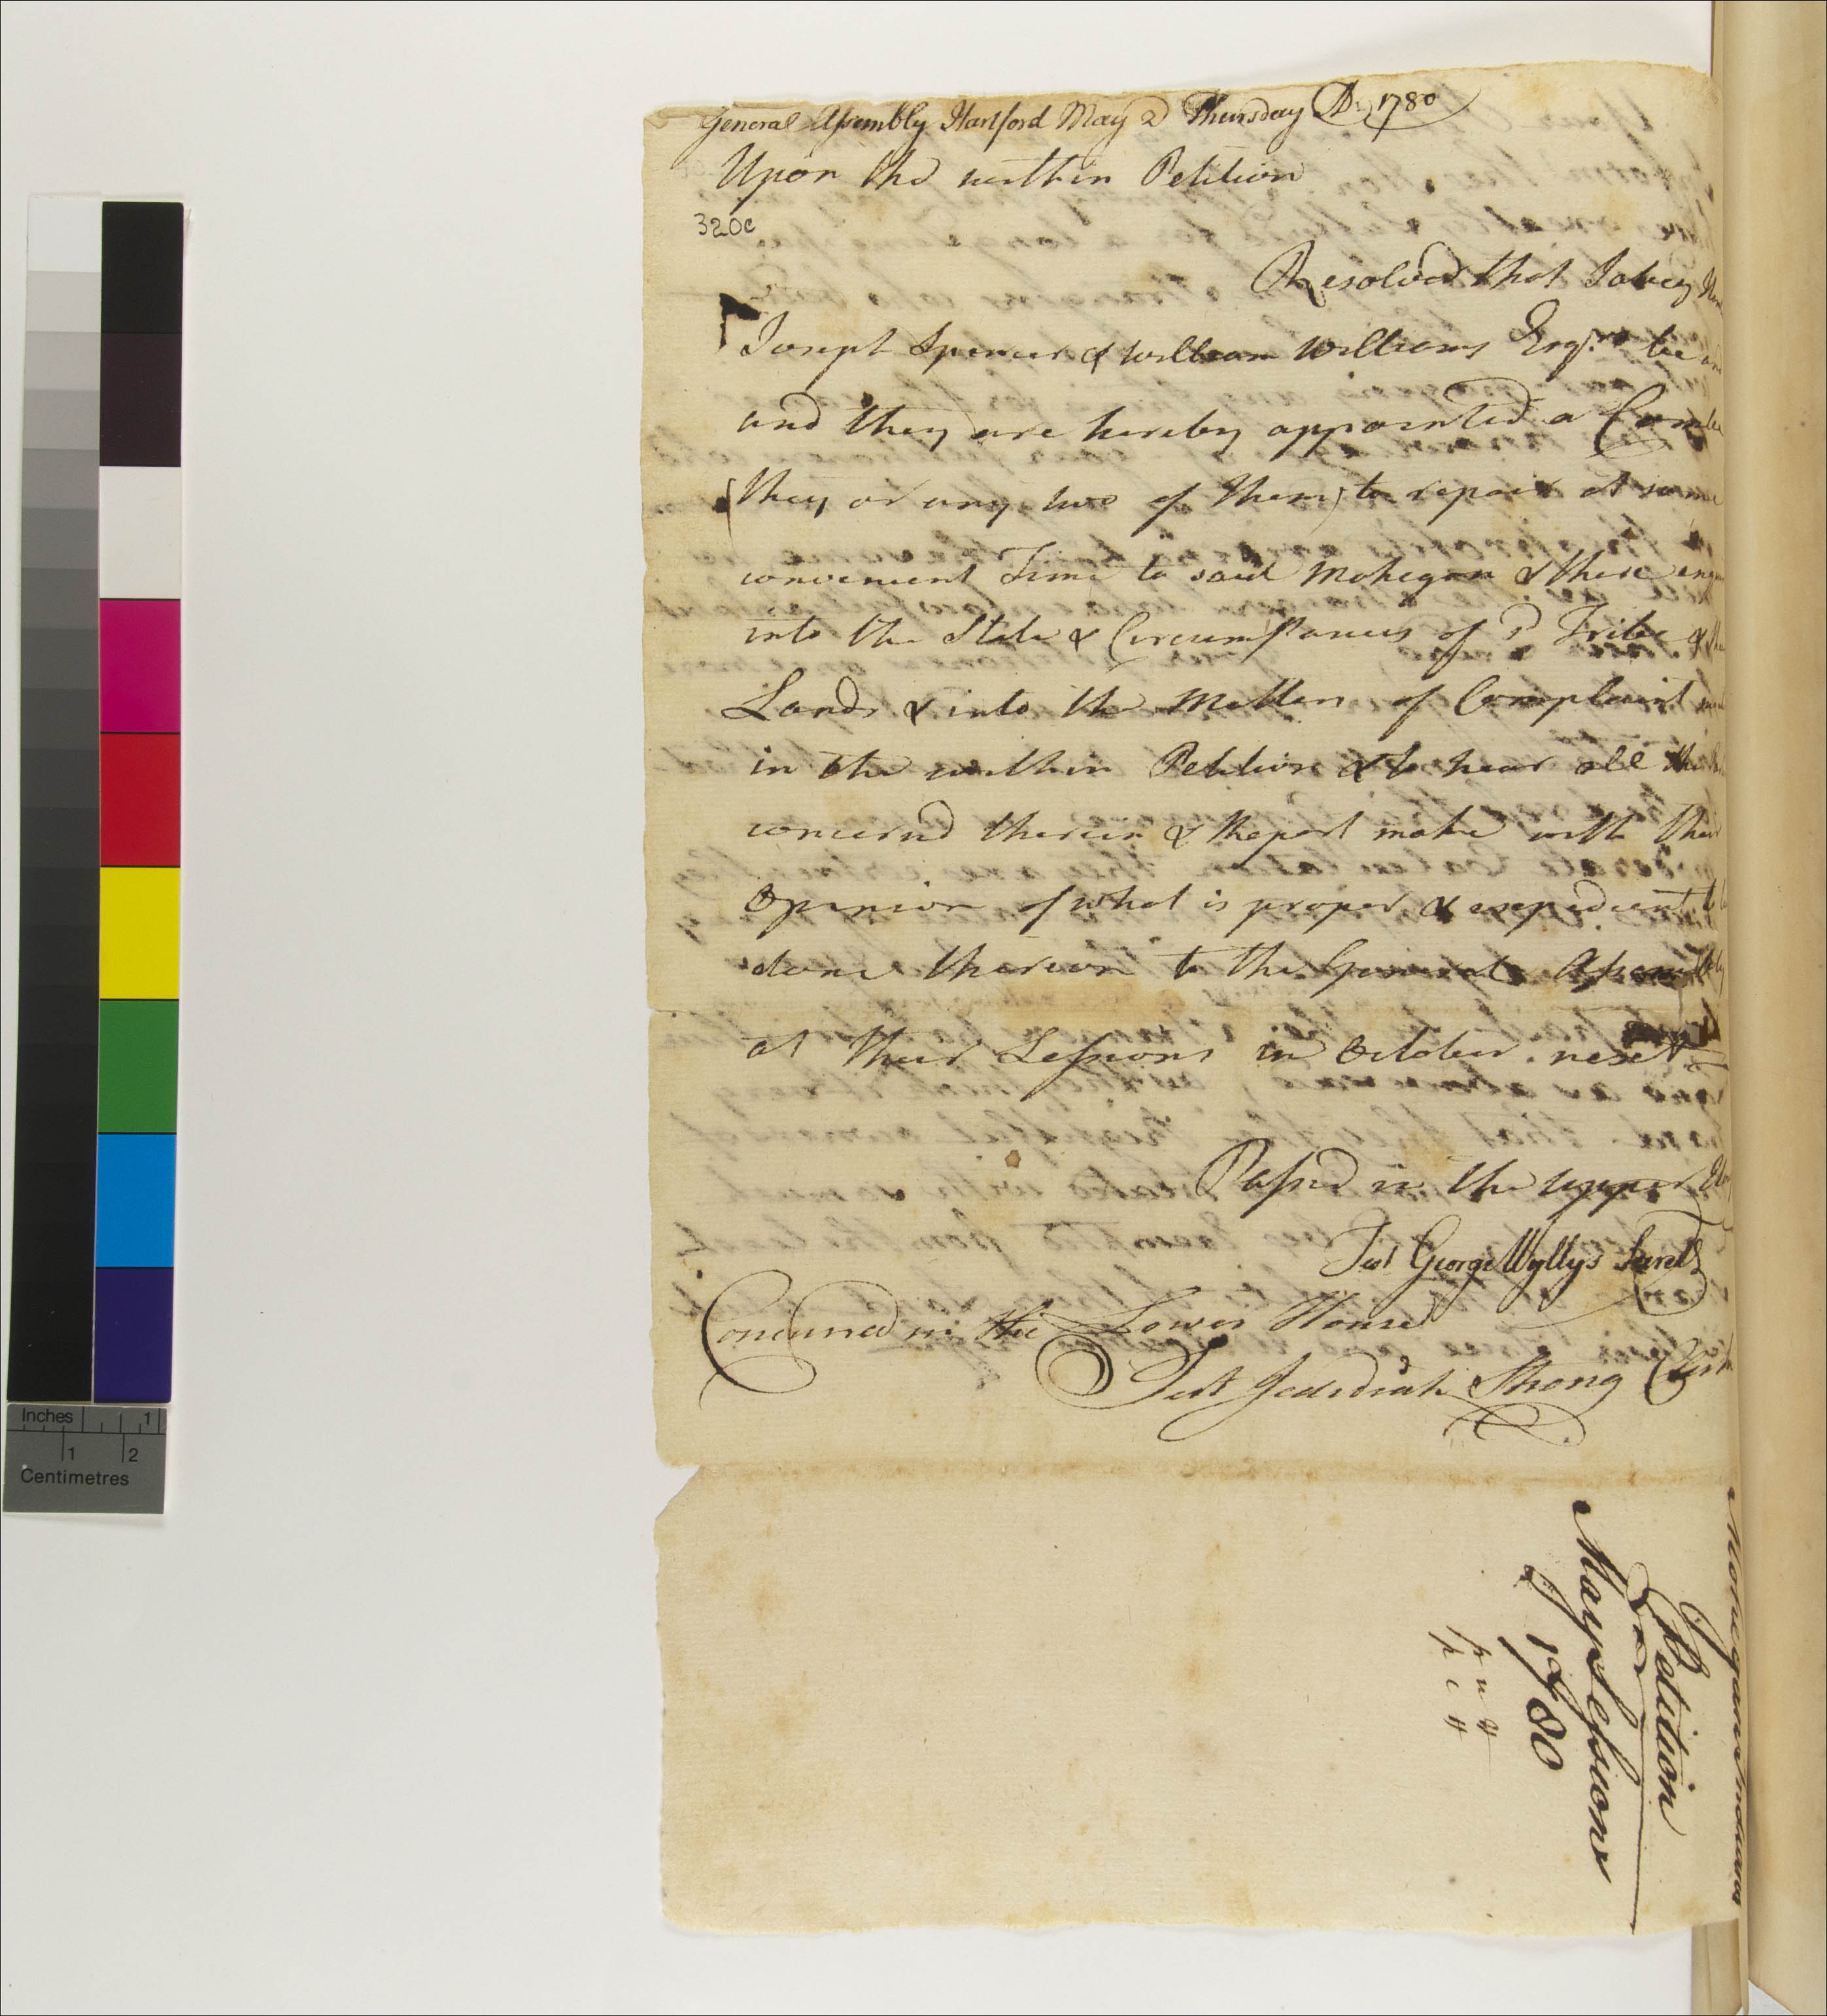 General Assembly Hartford May 2d Thursday AD. 1780
Upon the within Petition
320c
Resolved that Jabez
Joseph Spencer & William Williams Esqrs be
and they are hereby appointed a Comtee
(they or any two of them) to repair at some
convenient Time to said Mohegan & there
into the State & Circumstances of sd Tribe &
Lands & into the Matters of Complaint
in the within Petition & to hear all the
concernd therein & Report make with their
Opinion of what is proper & expedient to
done thereon to the General Assembly
at their Sessions in October next
Passd in the upper
Test George Wyllys Secrety
Concurred in the Lower House
Test Jedidiah Strong Clerk
Mohegan Indians
Petition
May Sessions
1780
p u H
p c H
Inches 1
1 2
Centimetres